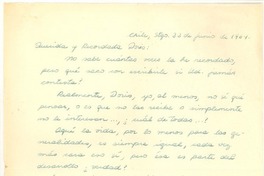 Chile, Stgo. 22 de junio de 1954.
Querida y Recordada Doris:
No sabe cuantas veces la he recordado,
pero qué saco con escribirle si Ud. jamás
contesta!
Realmente, Doris, yo, al menos, no sé qué
pensar, o es que no las recibe o simplemente
no le interesan..., ¿cuál de todas...!
Aquí la vida, por lo menos para las ge-
neralidades, es siempre igual, cada vez
más cara eso sí, pero ese es parte del
desarrollo, verdad!